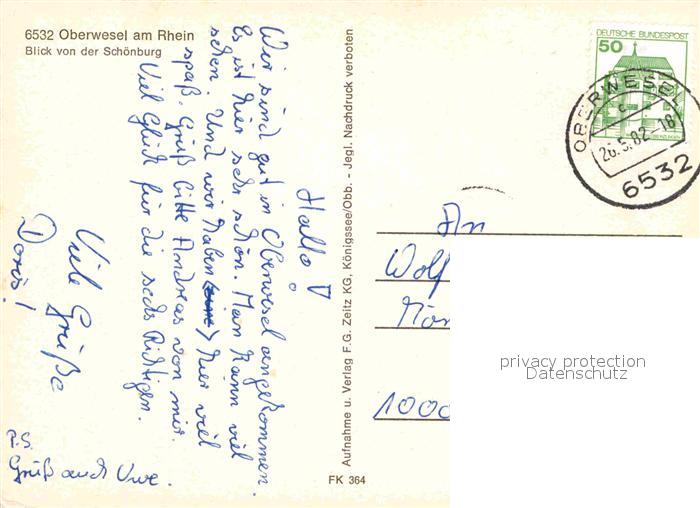 6532 Oberwesel am Rhein
Blick von der Schönburg
Hallo!
Wir sind gut in Oberwesel angekommen.
Es ist hier sehr schön. Man kann viel
sehen. Und wir haben hier viel
spaß. Grüß bitte Andreas von mir.
Viel Glück für die sechs Richtigen.
Viele Grüße
Doris!
P.S.
Grüß auch Uwe.
Aufnahme u. Verlag F.G. Zeitz KG, Königssee/Obb. - Jegl. Nachdruck verboten
FK 364
DEUTSCHE BUNDESPOST
50
OBERWESEL
c
26.5.82-18
6532
An
Wolf
1000
privacy protection
Datenschutz